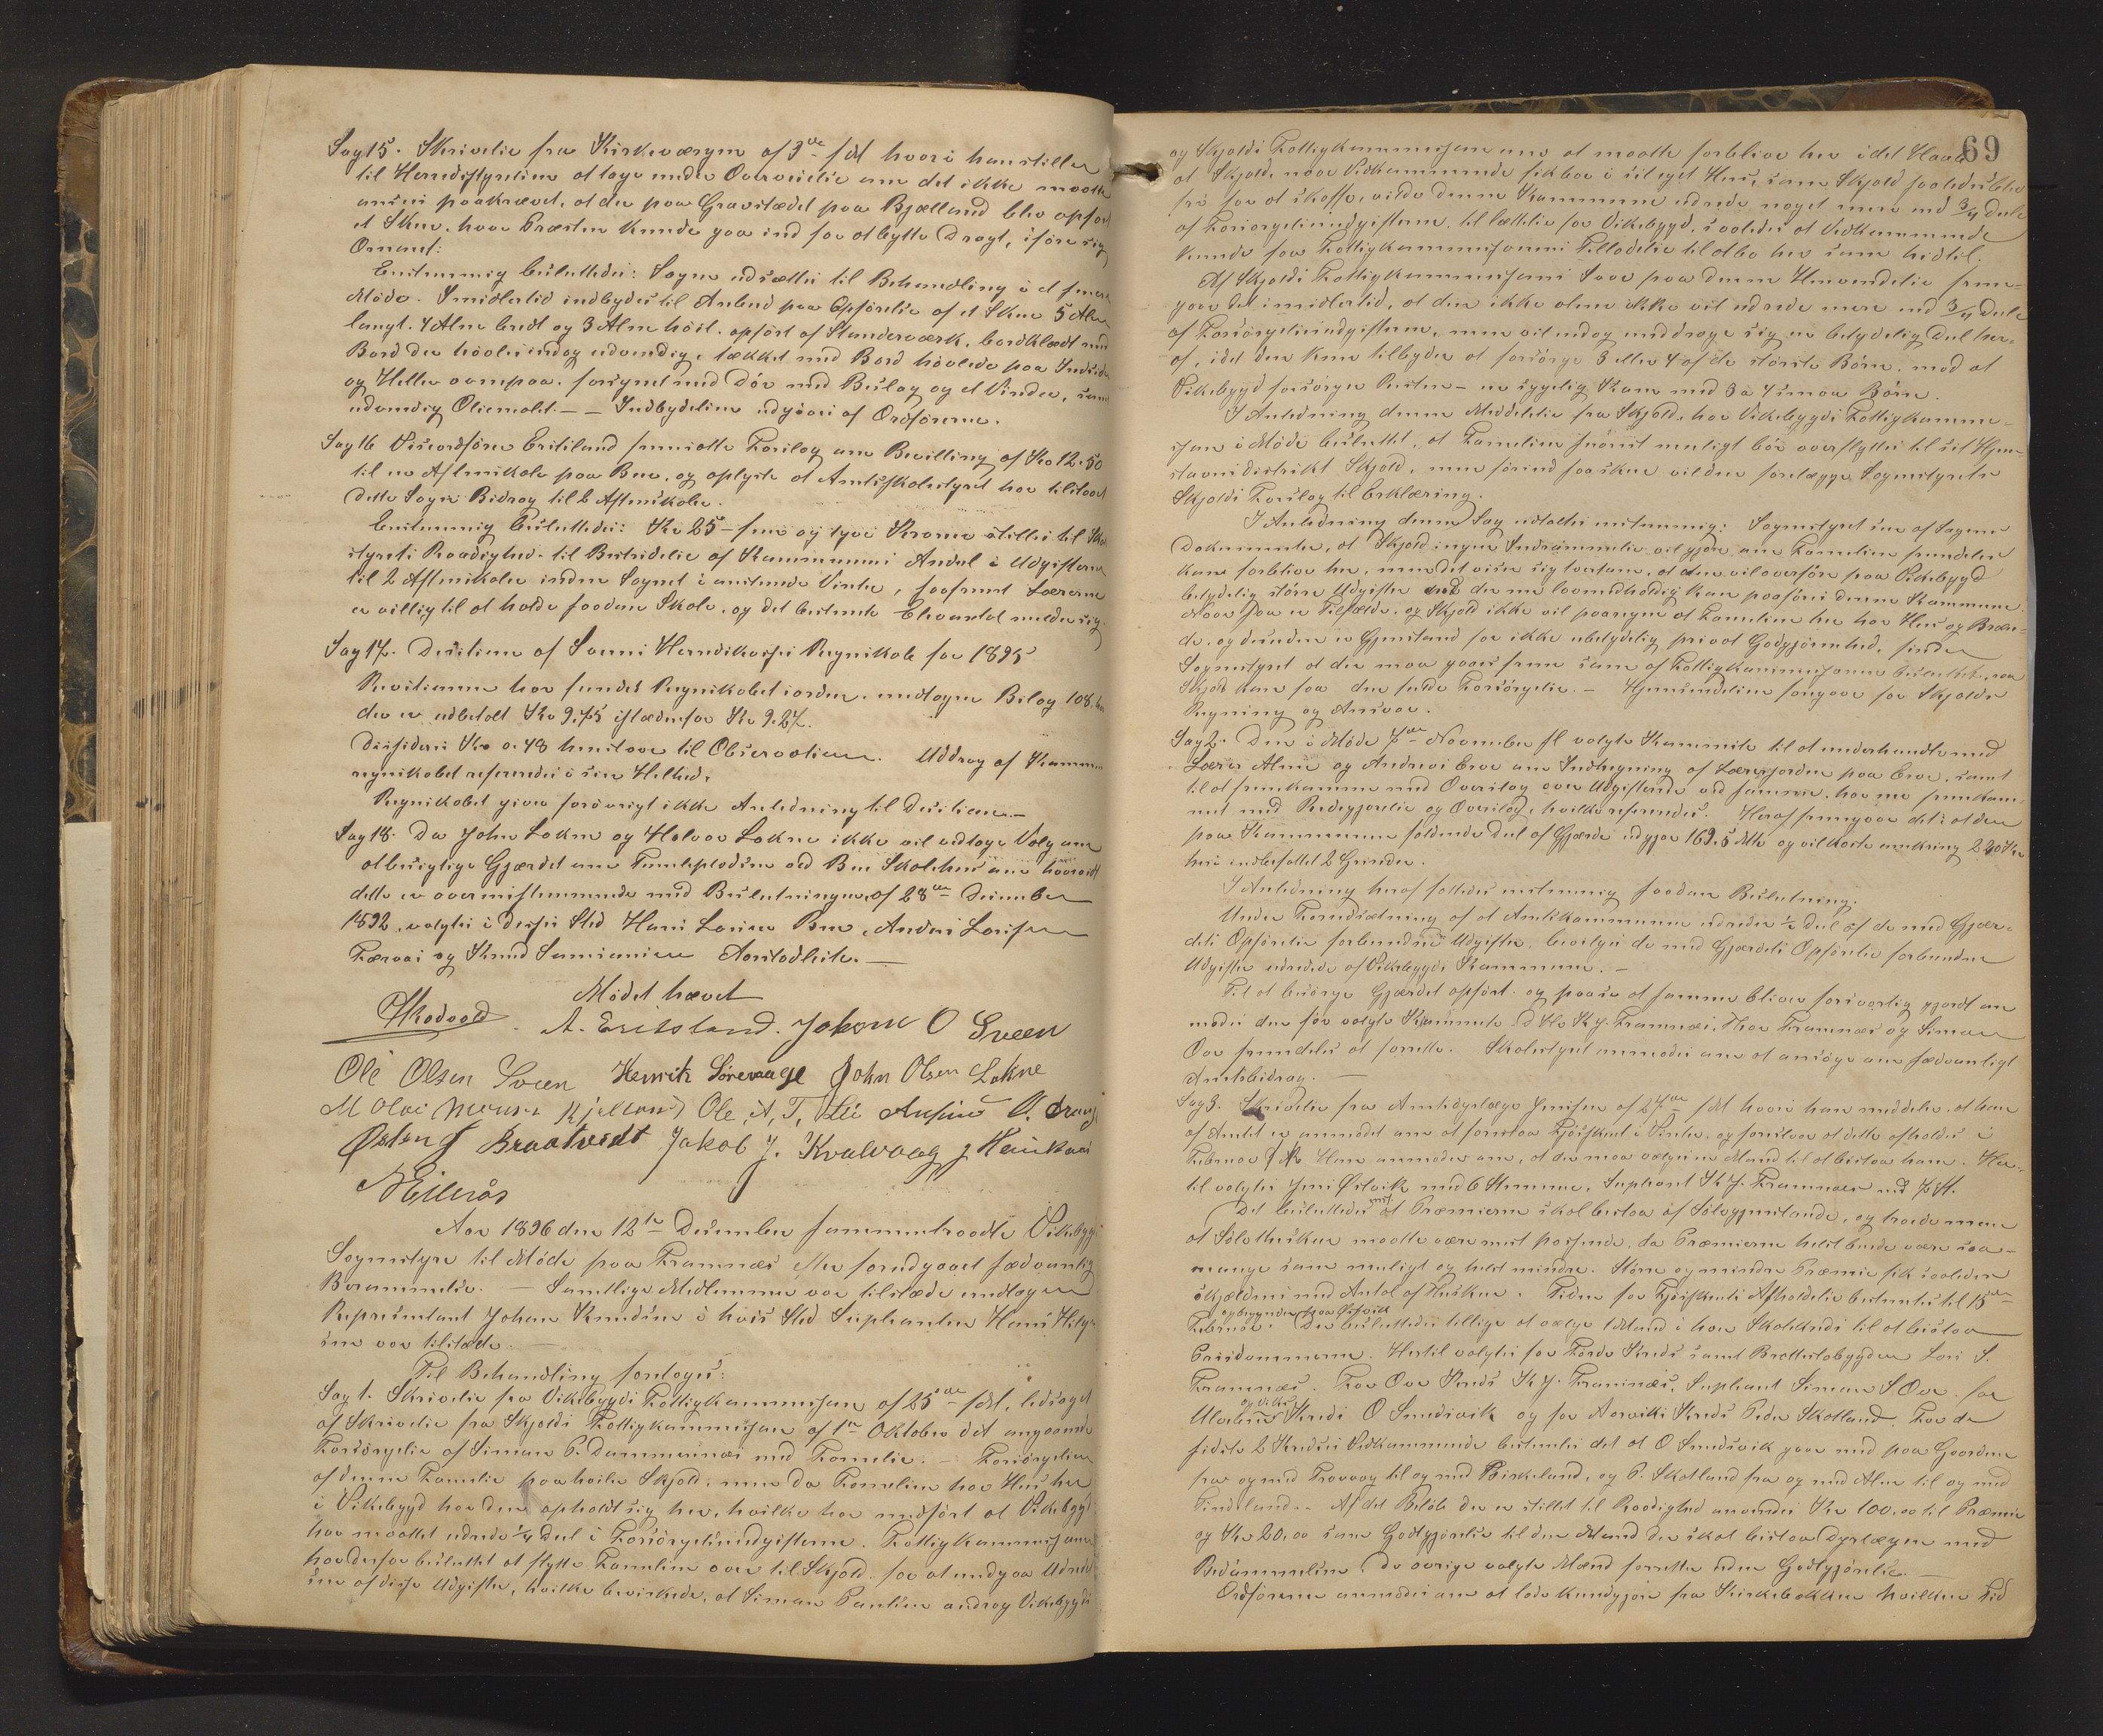 Sag 15. Skrivelse fra Kirkeværgen af 3die ds hvori han stiller
til Herredsstyrelsen at tage under Overveielse om det ikke maatte
ansees paakrævet, at der paa Gravstedet paa Bjælland blev opført
et Skur, hvor Præsten kunde gaa ind for at bytte Dragt, iføre sig
Ornat:
Enstemmig besluttedes: Sagen udsættes til Behandling i et senere
Møde. Imidlertid indbydes til Anbud paa Opførelse af et Skur 5 Alen
langt, 4 Alen bredt og 3 Alen høit, opført af Standerværk, bordklædt med
Bord der høvles ind og udvendig, tækket med Bord høvlede paa Indsiden
og Heller ovenpaa, forsynet med Dør med Beslag og et Vindu, samt
udvendig Oliemalet. — — Indbydelsen udgaaes af Ordføreren.
Sag 16 Viseordfører Eritsland fremsatte Forslag om Bevilling af Kr 12.50
til en Aftenskole paa Bue, og oplyste at Amtsskolestyret har tilstaaet
dette Sogn Bidrag til 2 Aftenskoler.
Enstemmig besluttedes: Kr 25 – fem og tyve Kroner stilles til Skole
styrets Raadighed til Bestridelse af Kommunens Andel i Udgifterne
til 2 Aftenskoler inden Sognet i anstundende Vinter, saafremt Lærerne
er villig til at holde saadan Skole, og det bestemte Elevantal melder sig.
Sag 17. Decision af Sogns Herredskasses Regnskab for 1895
Revisionen har fundet Regnskabet i orden, undtagen Bilag 108, hvor
der er udbetalt Kr 9,75 istedenfor Kr 9.27.
Decideres Kr 0.48 henstaar til Observation. Uddrag af Kommune
regnskabet refereredes i sin Helhed.
Regnskabet giver forøvrigt ikke Anledning til Decision. —
Sag 18. Da John Løkne og Halvor Løkne ikke vil modtage Valg om
at besigtige Gjærdet om Tomteplassen ved Bue Skolehus om hvorvidt
dette er overensstemmende med Beslutningen af 28de December
1892, valgtes i disses Sted Hans Larsen Bue, Anders Larsen
Tærvas og Knud Samiansen
Mødet hævet
A. Eritsland. Johan O Sveen
Ole Olsen Sveen Henrik Sørevaage John Olsen Løkne
M Olai Monsen Kjelland Ole, A, T, Lie
Østen J Braatveit Jakob J. Kvalvaag
Aar 1896 den 12te December sammentraadte Vikebygds
Sognestyre til Møde paa Framnæs efter forudgaaet sædvanlig
Berammelse. — Samtlige Medlemmer var tilstede undtagen
Repræsentant Johan Knudsen i hvis Sted Supleanten Hans Helge-
sen var tilstede.
Til Behandling foretoges:
Sag 1. Skrivelse fra Vikebygds Fattigkommission af 25de ds, ledsaget
af Skrivelse fra Skjolds Fattigkommission af 1ste Oktober dt angaaende
Forsørgelse af Simon P. Dommersnæs med Familie. — Forsørgelsen
af denne Familie paahviler Skjold, men da Familien har Hus her
i Vikebygd har den opholdt sig her, hvilket har medført at Vikebygd
har maattet udrede 1/4 Deel i Forsørgelsesudgifterne. Fattigkommissionen
har derfor besluttet at flytte Familien over til Skjold, for at undgaa Udredel-
sen af disse Udgifter, hvilket bevirkede, at Simon Paulsen androg Vikebygds
69
og Skjolds Fattigkommission om at maatte forblive her i det Haab
at Skjold, naar Vedkommende fik bo i sit eget Hus, som Skjold saaledes blev
fri for at skaffe, vilde denne Kommune udrede noget mere end 3/4 Dele
af Forsørgelsesudgifterne, til lettelse for Vikebygd, saaledes at Vedkommende
kunde faa Fattigkommissionens Tilladelse til at bo her som hidtil.
Af Skjolds Fattigkommissions Svar paa denne Henvendelse frem-
gaar det imidlertid, at den ikke alene ikke vil udrede mere end 3/4 Dele
af Forsørgelsesudgifterne, men vil endog unddrage sig en betydelig Deel her-
af, idet den kun tilbyder at forsørge 3 eller 4 af de største Børn, mod at
Vikebygd forsørger Resten – en sygelig Kone med 3 a 4 smaa Børn.
I Anledning denne Meddelelse fra Skjold, har Vikebygds Fattigkommis-
sion i Møde besluttet, at Familien snarest muligt bør overflyttes til sit Hjem-
stavnsdistrikt Skjold, men førend saa sker vil den forelægge Sognestyret
Skjolds Forslag til Erklæring.
I Anledning denne Sag udtaltes enstemmig: Sognestyret ser af Sagens
Dokumenter, at Skjold ingen Indrømmelse vil gjøre om Familien fremdeles
kan forblive her, men det viser sig tvertom, at den vil overføre paa Vikebygd
betydelig større Udgifter end der nu lovmedholdig kan paaføres denne Kommune.
Naar saa er Tilfælde, og Skjold ikke vil paaregne at Familien her har Hus og Bræn-
de, og desuden er Gjenstand for ikke ubetydelig privat Godgjørenhed, finder
Sognestyret at der maa gaaes frem som af Fattigkommissionen besluttet, saa
Skjold kan faa den fulde Forsørgelse. — Hjemsendelsen foregaar for Skjolds
Regning og Ansvar.
Sag 2. Den i Møde 7de November fl valgte Kommite til at underhandle med
Lærer Alne og Andreas Erve om Indhegning af Lærerjorden paa Erve, samt
til at fremkomme med Overslag over Udgifterne ved samme, har nu fremkom-
met med Redegjørelse og Overslag, hvilke refereredes. Heraf fremgaar det: at den
paa Kommunen faldende Deel af Gjærde udgjør 169,5 Mtr og vil koste omkring 220 Kr
heri indbefattet 2 Grinder.
I Anledning heraf fattedes enstemmig saadan Beslutning:
Under Forudsætning af at Amtskommunen udreder 1/2 Deel af de med Gjær-
dets Opførelse forbundne Udgifter, bevilges de med Gjærdets Opførelse forbundne
Udgifter udredede af Vikebygds Kommune. —
Til at besørge Gjærdet opført og paase at samme bliver forsvarlig gjort an-
modes den før valgte Kommite Hr K J. Framnæs, Thor Framnæs og Simon
Ove fremdeles at forrette. Skolestyret anmodes om at ansøge om sædvanligt
Amtsbidrag. —
Sag 3. Skrivelse fra Amtsdyrlæge Jensen af 27de ds hvori han meddeler, at han
af Amtet er anmodet om at forestaa Fjøsskuet i Vinter, og foreslaar at dette afholdes i
Februar Han anmoder om, at der maa vælges en Mand til at bistaa ham. Her-
til valgtes Jens Ølsvik med 6 Stemmer, Supleant K J. Framnæs med 7 St.
Det besluttedes at Præmierne skal bestaa af Sølvgjenstande, og troede man
at Sølvtheskeer maatte være mest passende, da Præmierne helst burde være saa-
mange som muligt og helst mindre. Større og mindre Præmie fik saaledes
skjelnes med Antal af Theskeer. Tiden for Fjøsskuets Afholdelse bestemtes til 15de
og begynder paa Ølsvik
Februar. Der besluttedes tillige at vælge 1 Mand i hver Skolekreds til at bistaa
Prisdommerne. Hertil valgtes for Førde Kreds samt Brattestøbygden Lars S.
Framnæs. For Ove Kreds K J. Framnæs, Supleant Simon S Ove. for
og Viks
Ulvenes Kreds O Smedsvik og for Aarviks Kreds Peder Skotland. For de
sidste 2 Kredses Vedkommende bestemtes det at O Smedsvik gaar med paa Gaardene
fra og med Trovaag til og med Birkeland, og P. Skotland fra og med Alne til og med
Tindeland. — Af det Beløb der er stillet til Raadighed anvendes Kr 100,00 til Præmier
og Kr 20,00 som Godtgjørelse til den Mand der skal bistaa Dyrlægen med
Bedømmelsen. De øvrige valgte Mænd forretter uden Godtgjørelse. —
Ordføreren anmodes om at lade kundgjøre fra Kirkebakken hvilken Tid